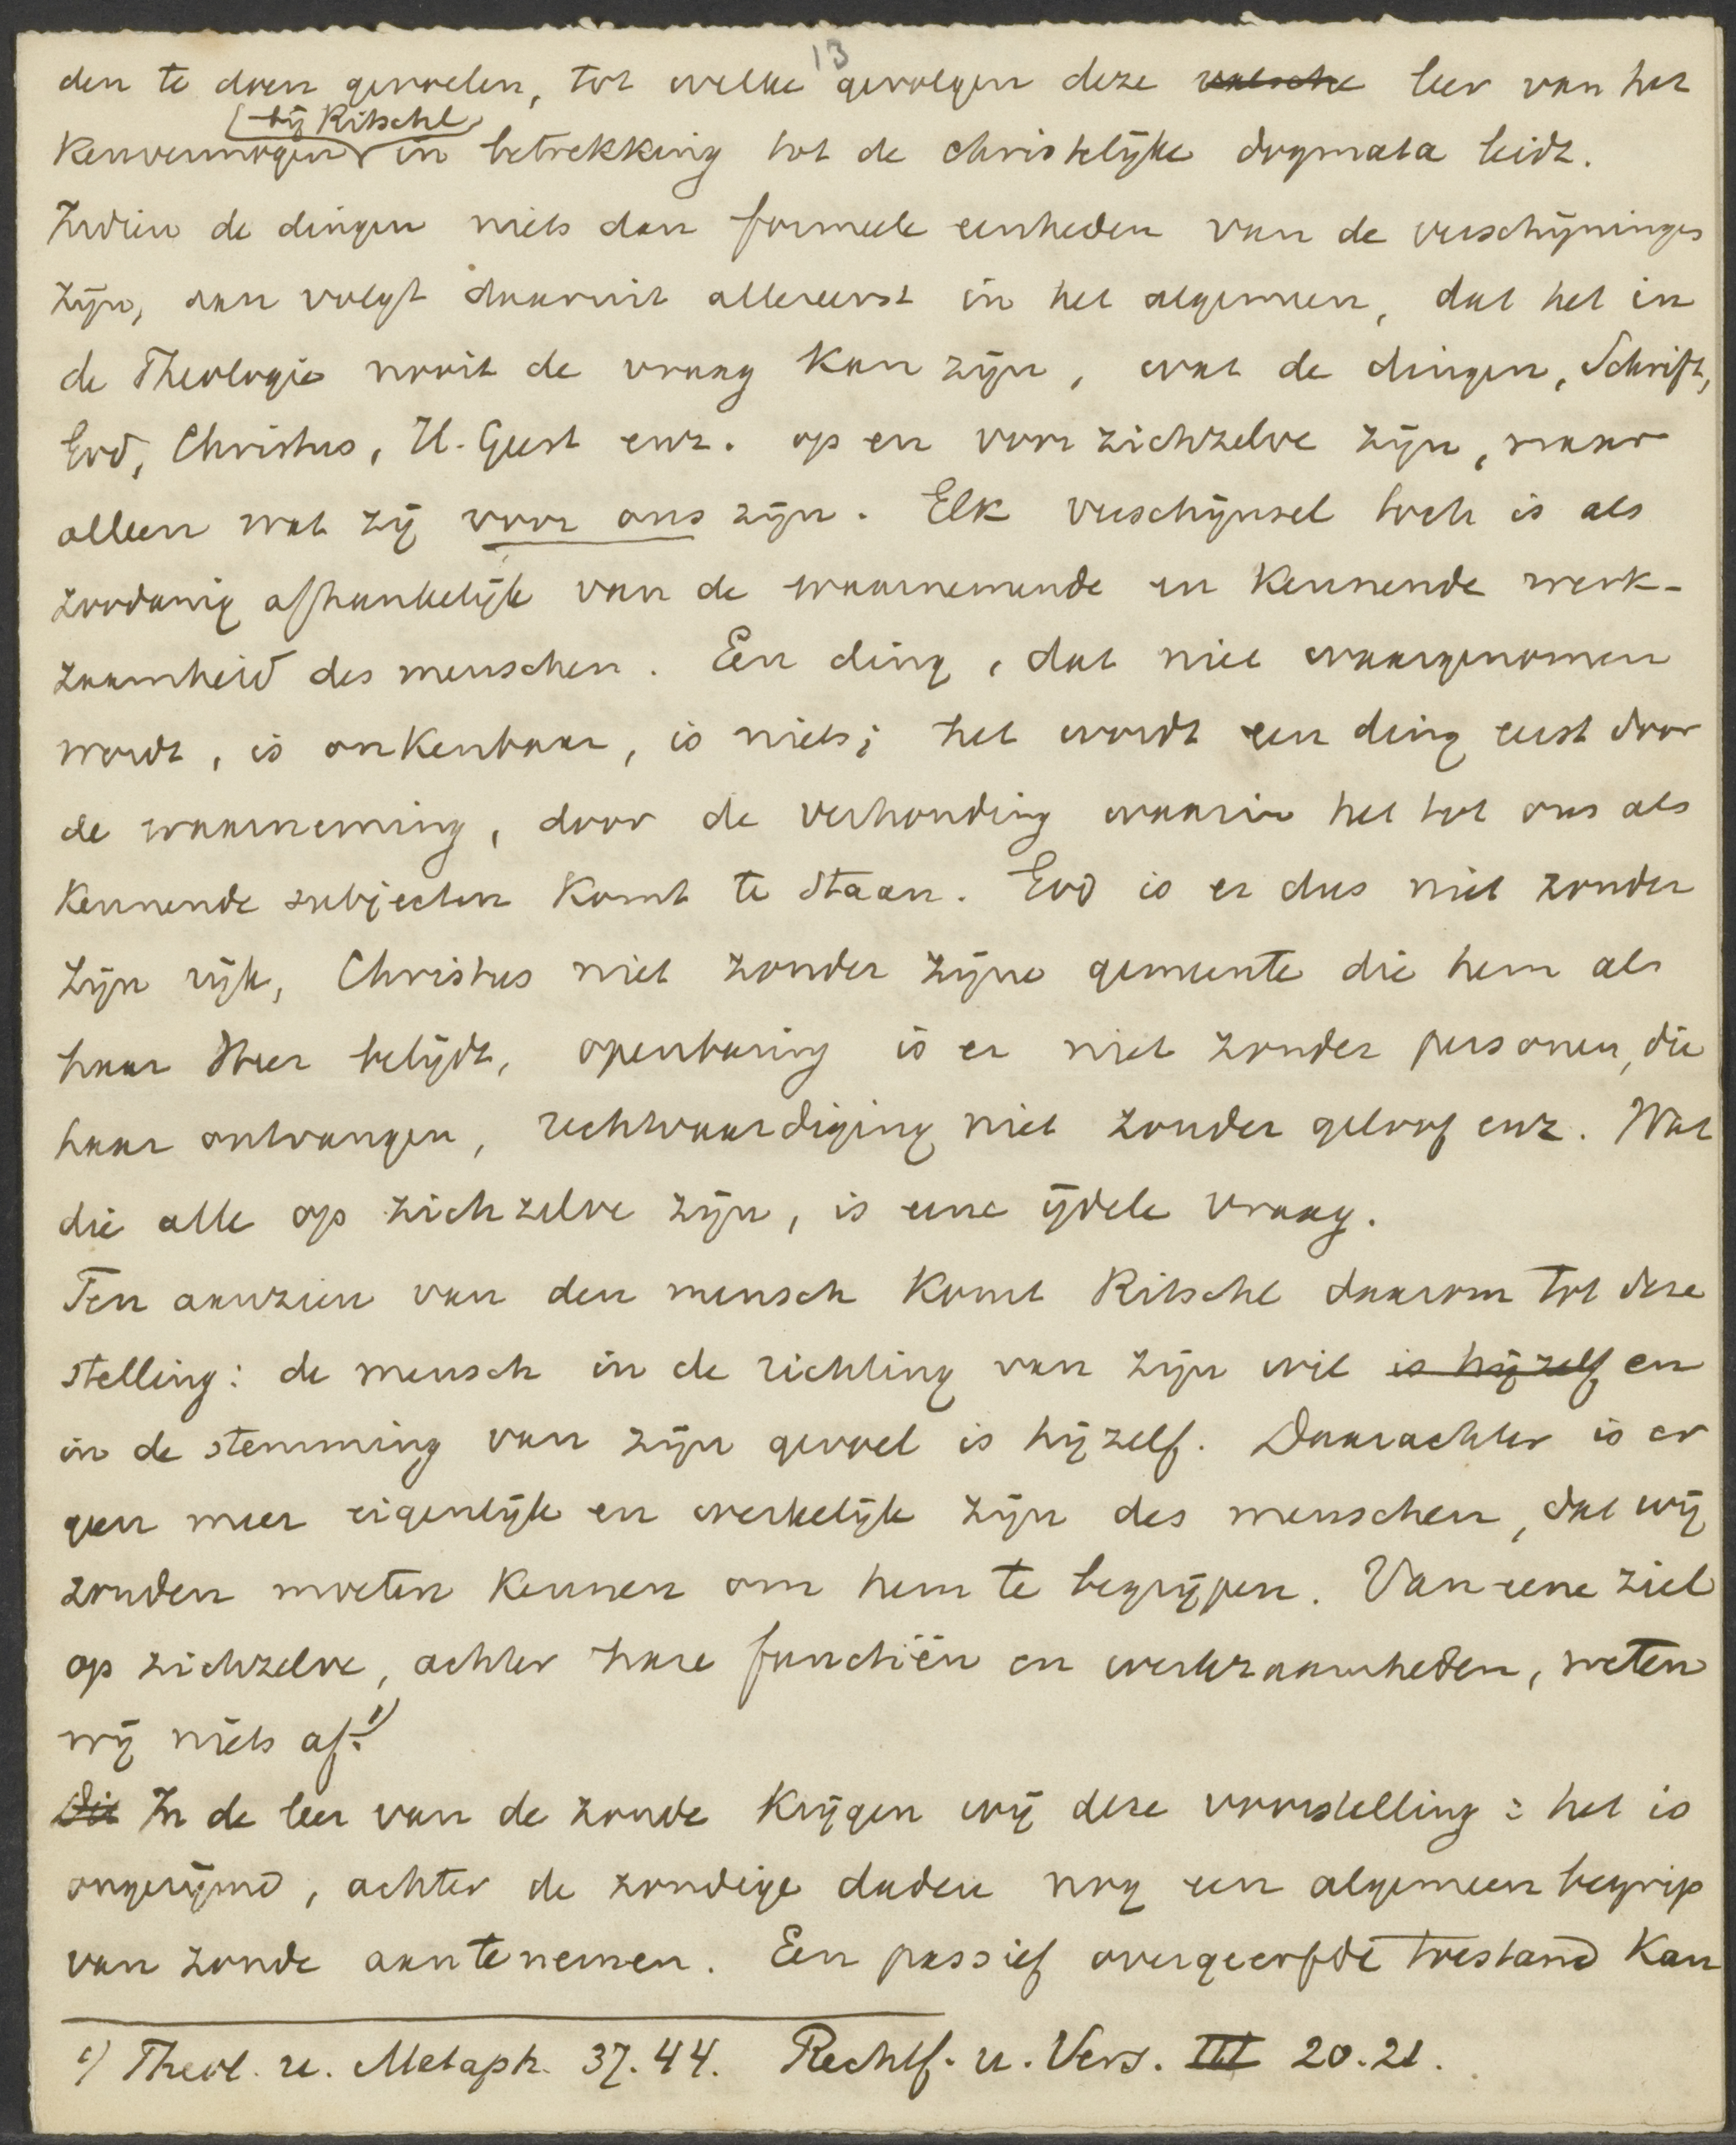 13
den te doen gevoelen, tot welke gevolgen deze valsche leer van het
bij Ritschl
Kenvermogen in betrekking tot de christelijke dogmata leidt.
Indien de dingen niets dan formeele eenheden van de verschijninges
zijn, dan volgt daaruit allereerst in het algemeen, dat het in
de Theologie nooit de vraag kan zijn, wat de dingen, Schrift,
God, Christus, H. Geest enz. op en voor zichzelve zijn, maar
alleen wat zij voor ons zijn. Elk verschijnsel toch is als
zoodanig afhankelijk van de waarnemende en kennende werk-
zaamheid des menschen. Een ding, dat niet waargenomen
wordt, is onkenbaar, is niets; het wordt een ding eerst door
de waarneming, door de verhouding waarin het tot ons als
kennende subjecten komt te staan. God is er dus niet zonder
zijn rijk, Christus niet zonder zijne gemeente die hem als
haar Heer belijdt, openbaring is er niet zonder personen, die
haar ontvangen, rechtvaardiging niet zonder geloof enz. Wat
die alle op zichzelve zijn, is eene ijdele vraag.
Ten aanzien van den mensch komt Ritschl daarom tot deze
stelling: de mensch in de richting van zijn wil is hijzelf en
in de stemming van zijn gevoel is hijzelf. Daarachter is er
geen meer eigenlijk en werkelijk zijn des menschen, dat wij
zouden moeten kennen om hem te begrijpen. Van eene ziel
op zichzelve, achter hare functiën en werkzaamheden, weten
wij niets af.1)
Dit In de leer van de zonde krijgen wij deze voorstelling: het is
ongerijmd, achter de zondige daden nog een algemeen begrip
van zonde aantenemen. Een passief overgeerfde toestand kan
1) Theol. u. Metaph. 37. 44. Rechtf. u. Vers. III 20. 21.